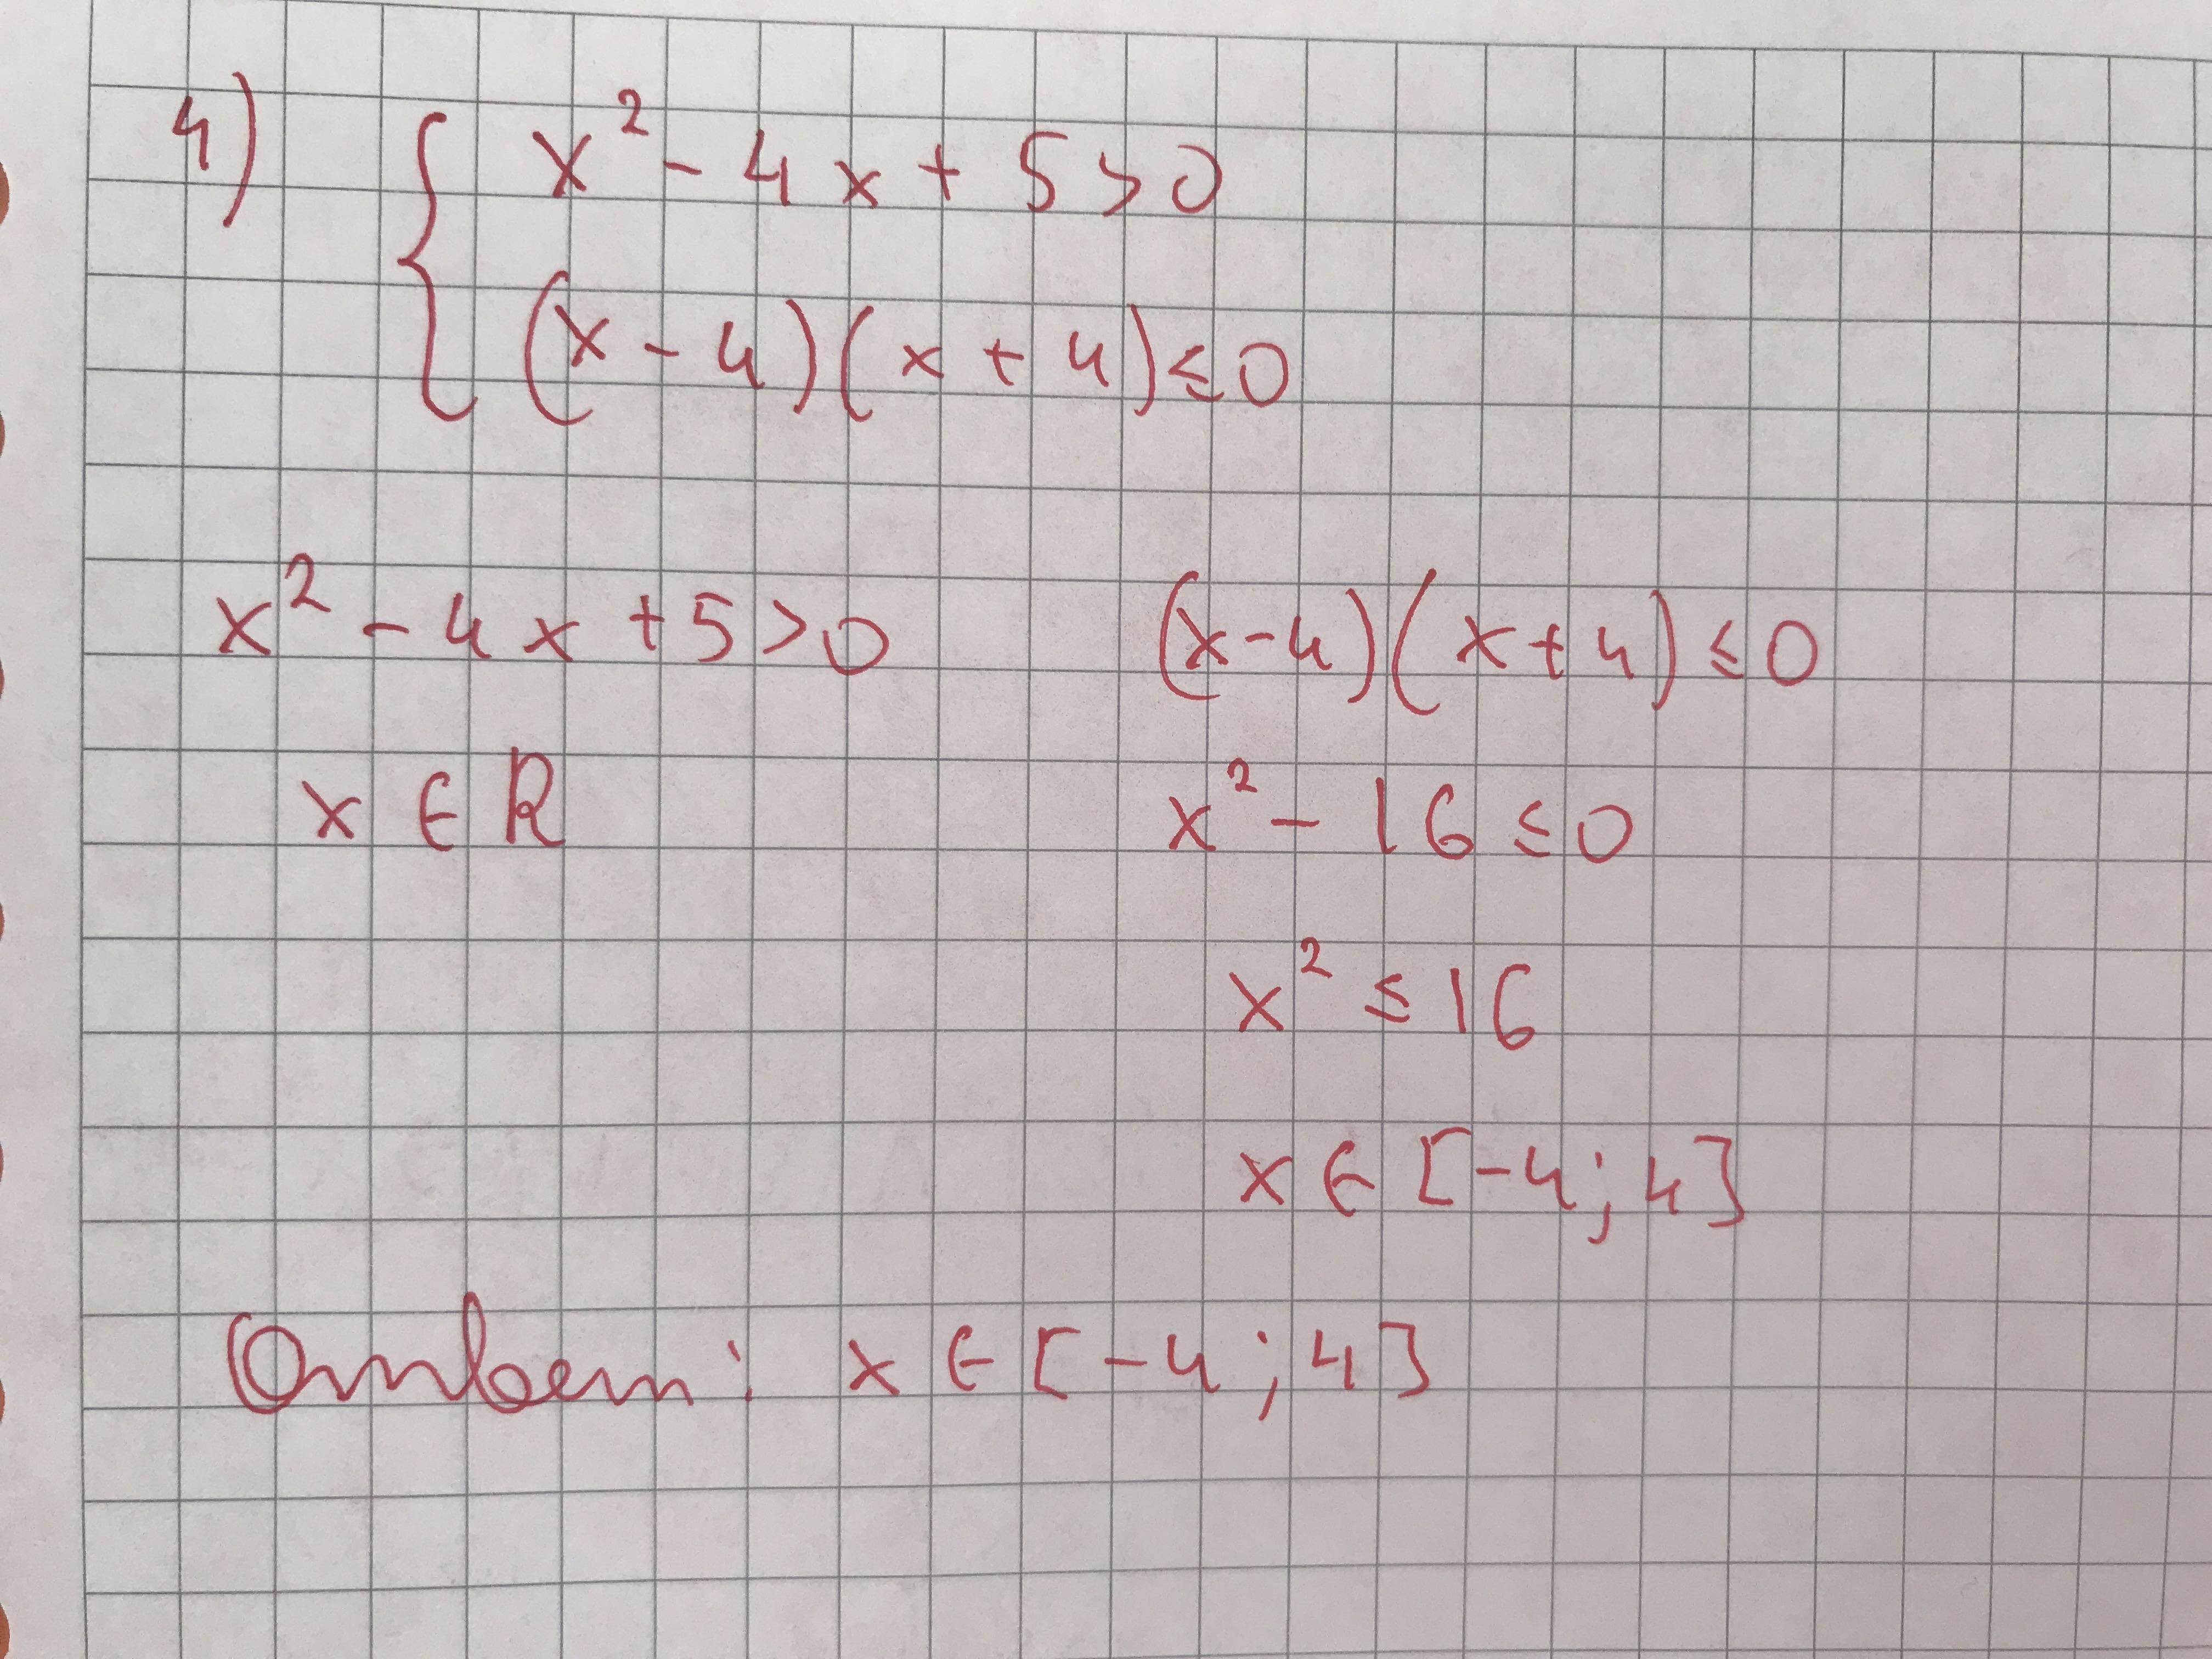 4) { x² - 4x + 5 > 0
(x - 4)(x + 4) ≤ 0
x² - 4x + 5 > 0
x ∈ R
(x - 4)(x + 4) ≤ 0
x² - 16 ≤ 0
x² ≤ 16
x ∈ [-4; 4]
Ответ: x ∈ [-4; 4]